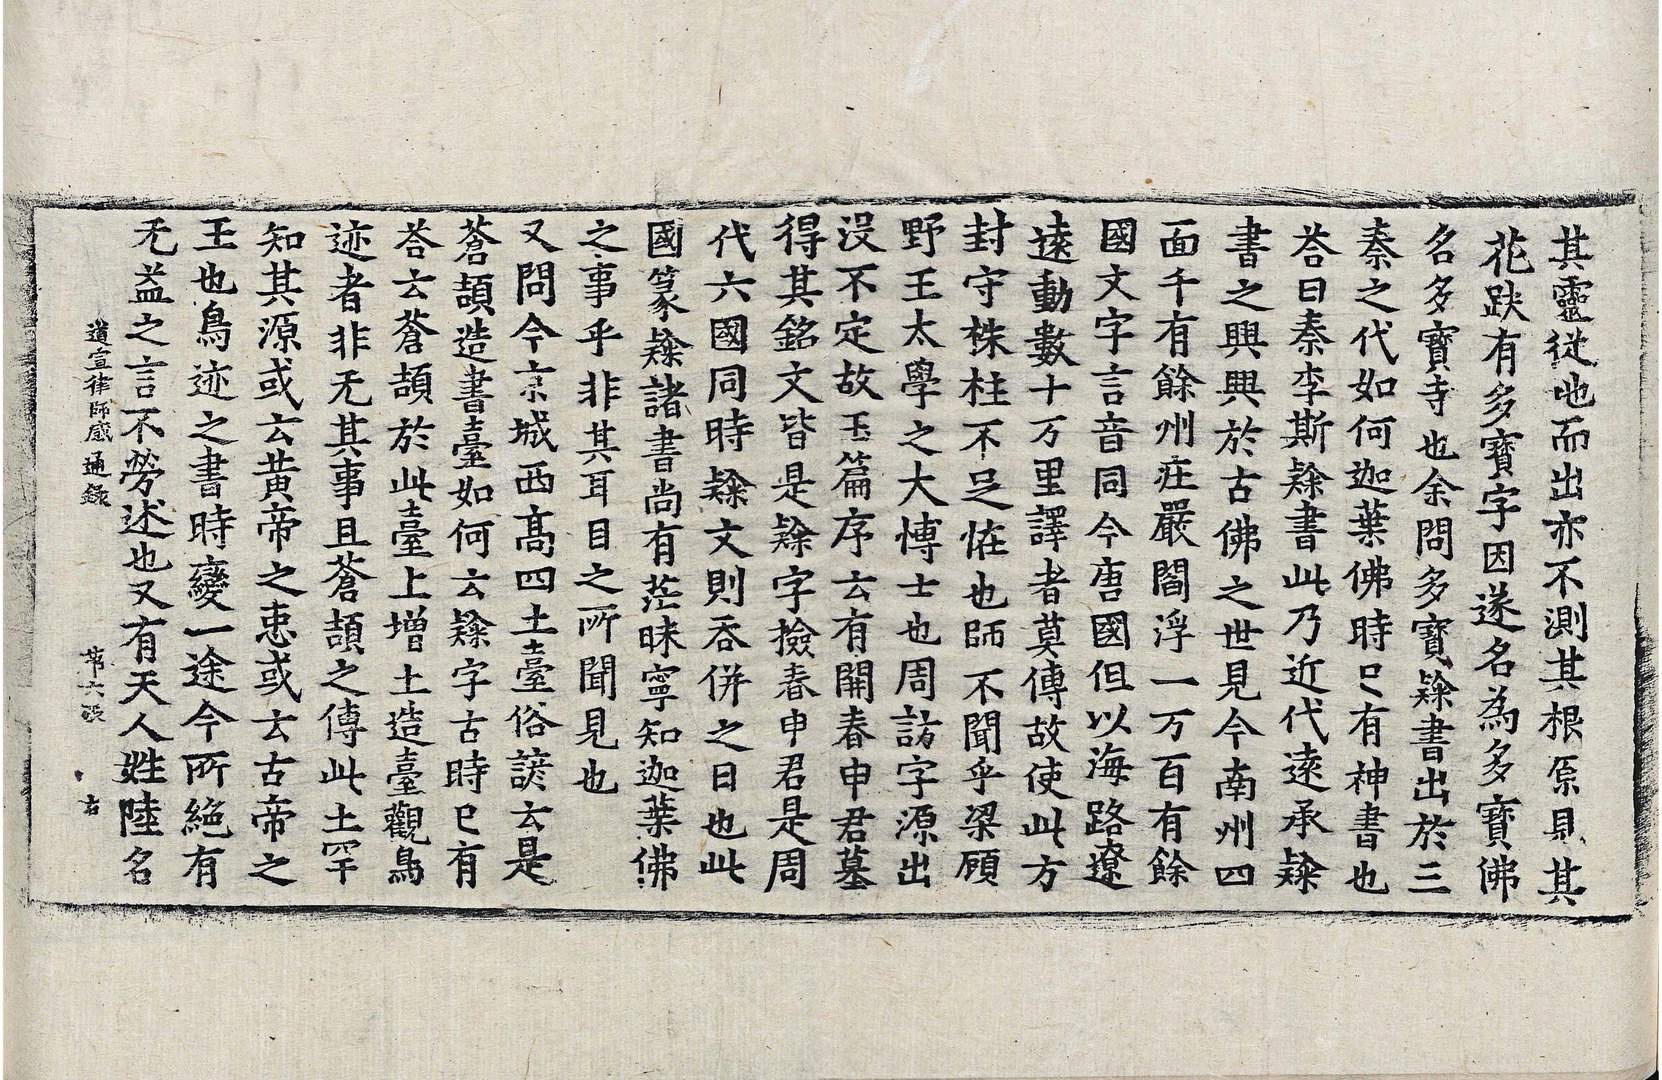 其靈從地而出亦不測其根原見其
花趺有多寶字因遂名為多寶佛
名多寶寺也余問多寶𨽻書出於三
秦之代如何迦葉佛時已有神書也
荅曰秦李斯𨽻書此乃近代遠承𨽻
書之興興於古佛之世見今南州四
面千有餘州庄嚴閻浮一万百有餘
國文字言音同今唐國但以海路遼
遠動數十万里譯者莫傳故使此方
封守株柱不足恠也師不聞乎梁顧
野王太學之大博士也周訪字源出
沒不定故玉篇序云有開春申君墓
得其銘文皆是𨽻字撿春申君是周
代六國同時𨽻文則吞併之日也此
國篆𨽻諸書尚有茫昧寧知迦葉佛
之事乎非其耳目之所聞見也
又問今京城西高四土臺俗諺云是
蒼頡造書臺如何云𨽻字古時已有
荅云蒼頡於此臺上增土造臺觀鳥
迹者非无其事且蒼頡之傳此土罕
知其源或云黃帝之臣或云古帝之
王也鳥迹之書時變一途今所絕有
无益之言不勞述也又有天人姓陸名
道宣律師感通錄 第六張 右